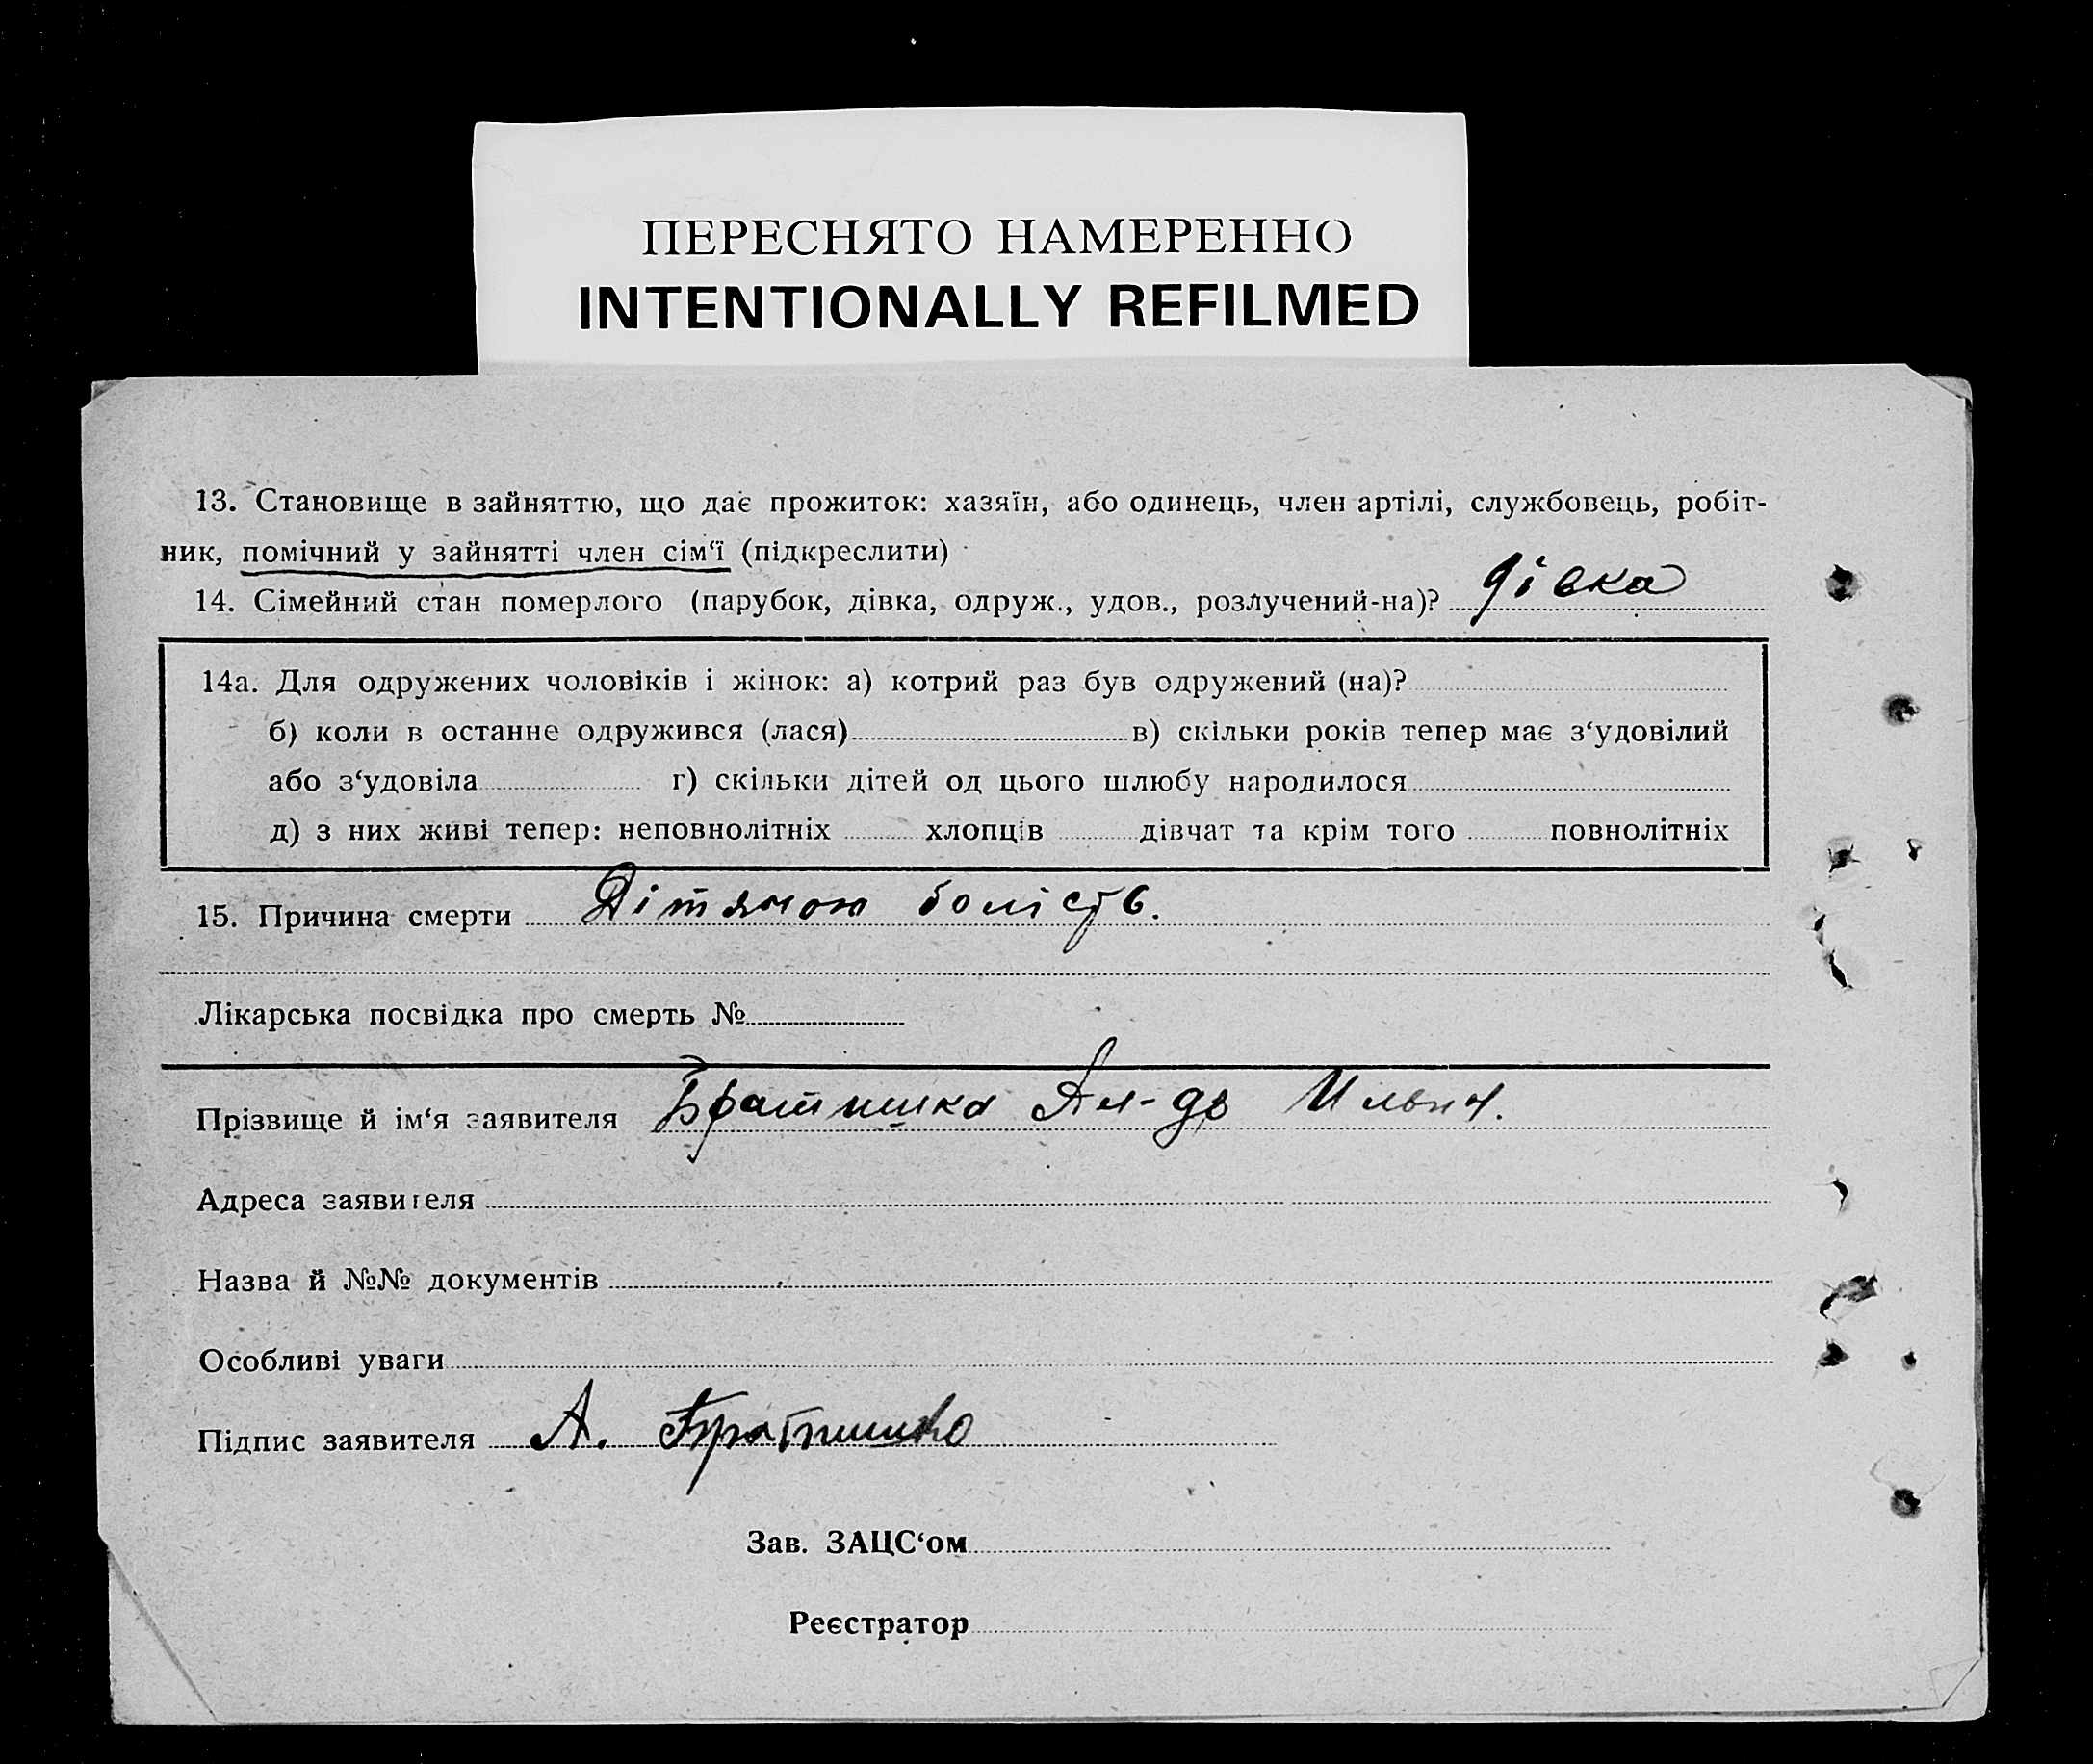 ПЕРЕСНЯТО НАМЕРЕННО
INTENTIONALLY REFILMED
13. Становище в зайняттю, що дає прожиток: хазяїн, або одинець, член артілі, службовець, робіт-
ник, помічний у зайнятті член сім‘ї (підкреслити)
14. Сімейний стан померлого (парубок, дівка, одруж., удов., розлучений-на)? дівка
14а. Для одружених чоловіків і жінок: а) котрий раз був одружений (на)?
б) коли в останне одружився (лася) в) скільки років тепер має з‘удовілий
або з‘удовіла г) скільки дітей од цього шлюбу народилося
д) з них живі тепер: неповнолітніх хлопців дівчат та крім того повнолітніх
15. Причина смерти
Лікарська посвідка про смерть №
Прізвище й ім‘я заявителя Братишка Ал-др Ильич.
Адреса заявителя
Назва й №№ документів
Особливі уваги
Підпис заявителя А. Братишко
Зав. ЗАЦС‘ом
Реєстратор